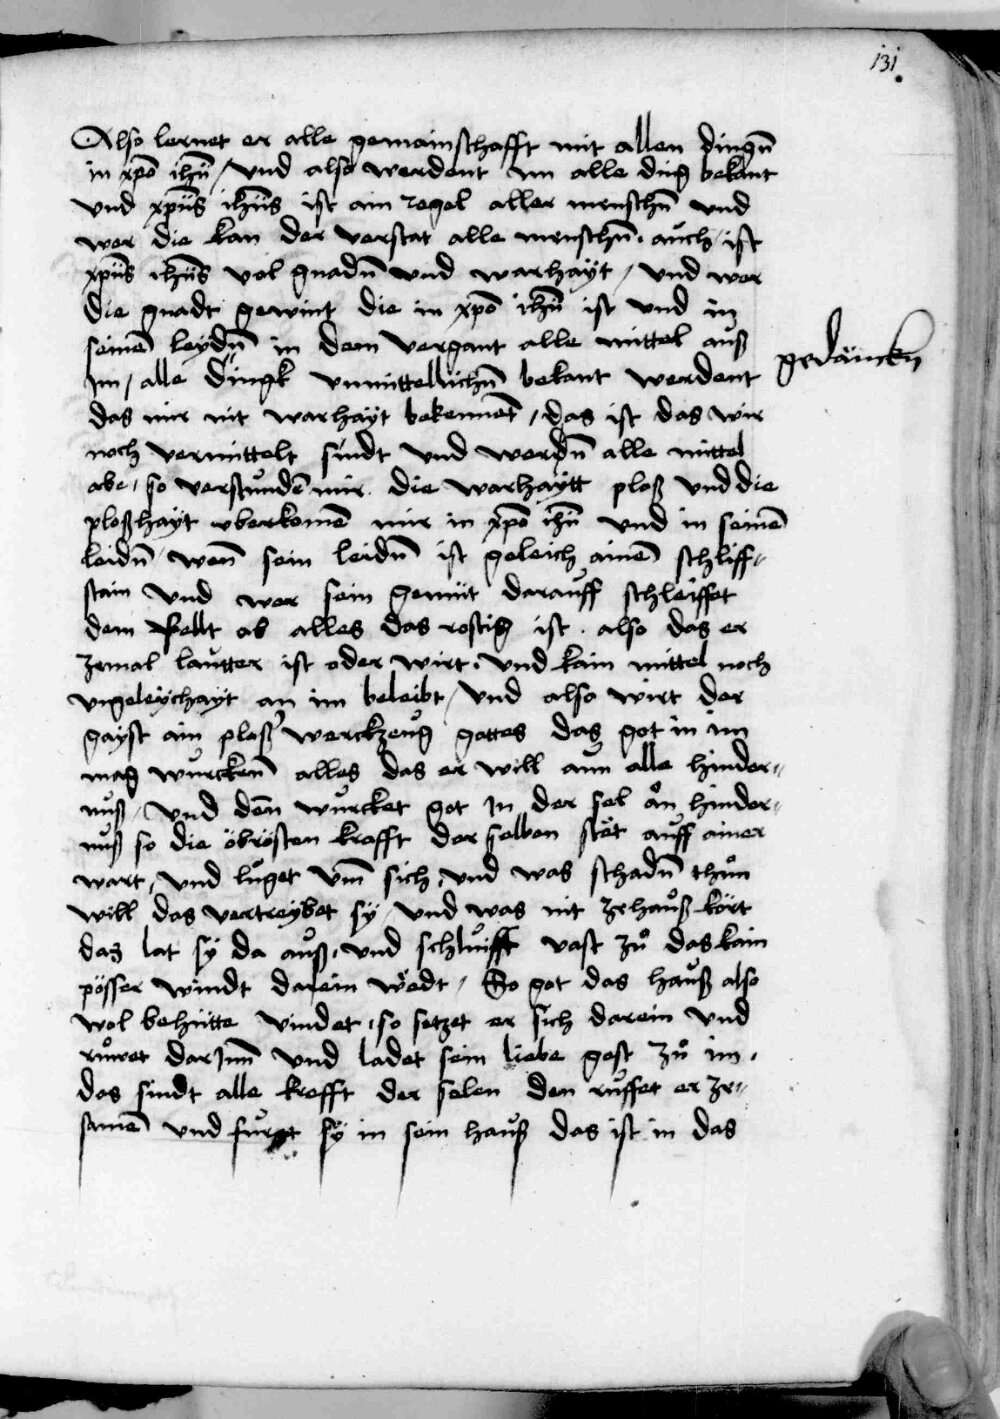 131
Also lernet er alle gemainschafft mit allen dingn̄
in xp̄o ih̄u / vnd also werdent im alle ding bekant
vnd xp̄us ih̄us ist ain regel aller menschn̄ vnd
wer die kan der verstat alle menschn̄ . auch ist
xp̄us ih̄us vol gnadn̄ vnd warhayt / vnd wer
die gnadt gewint die in xp̄o ih̄u ist vnd in
seinē leydn̄ in dem vergant alle mittel auß
gedänckn
im / alle dingk vnmittellichn̄ bekant werdent
das mir nit warhayt bekennēt / das ist das wir
noch vermittelt sindt vnd werdn̄ alle mittel
abe / so verstundē mir die warhaytt ploß vnd die
ploßhayt vberkomē mir in xp̄o ih̄u vnd in seinē
leidn̄ / wen̄ sein leidn̄ ist geleich ainē schliff⸗
stain vnd wer sein gemüt darauff schleiffet
dem felt ab alles das rostig ist . also das er
zemal lautter ist oder wirt . vnd kain mittel noch
vngeleychayt an im beleibt / vnd also wirt der
gayst ain ploß werckzeug gottes das got in im
mag wurcken̄ alles das er will aun alle hinder⸗
nuß / vnd den̄ wurcket got in der sel ån hinder⸗
nuß so die öbrösten krefft der selben stět auff ainer
wart / vnd luget vm̄ sich / vnd was schadn̄ thůn
will das vertreybet sy / vnd was nit ze hauß kört
das lat sy da auß / vnd schluifft vast zů das kain
pösser windt darein wědt / So got das hauß also
wol behütte vindet / so setzet er sich darein vnd
růwet dar Inn̄ vnd ladet sein liebe gest zů im .
das sindt alle krefft der selen den ruffet er ze⸗
samē vnd furgt sy in sein hauß das ist in das